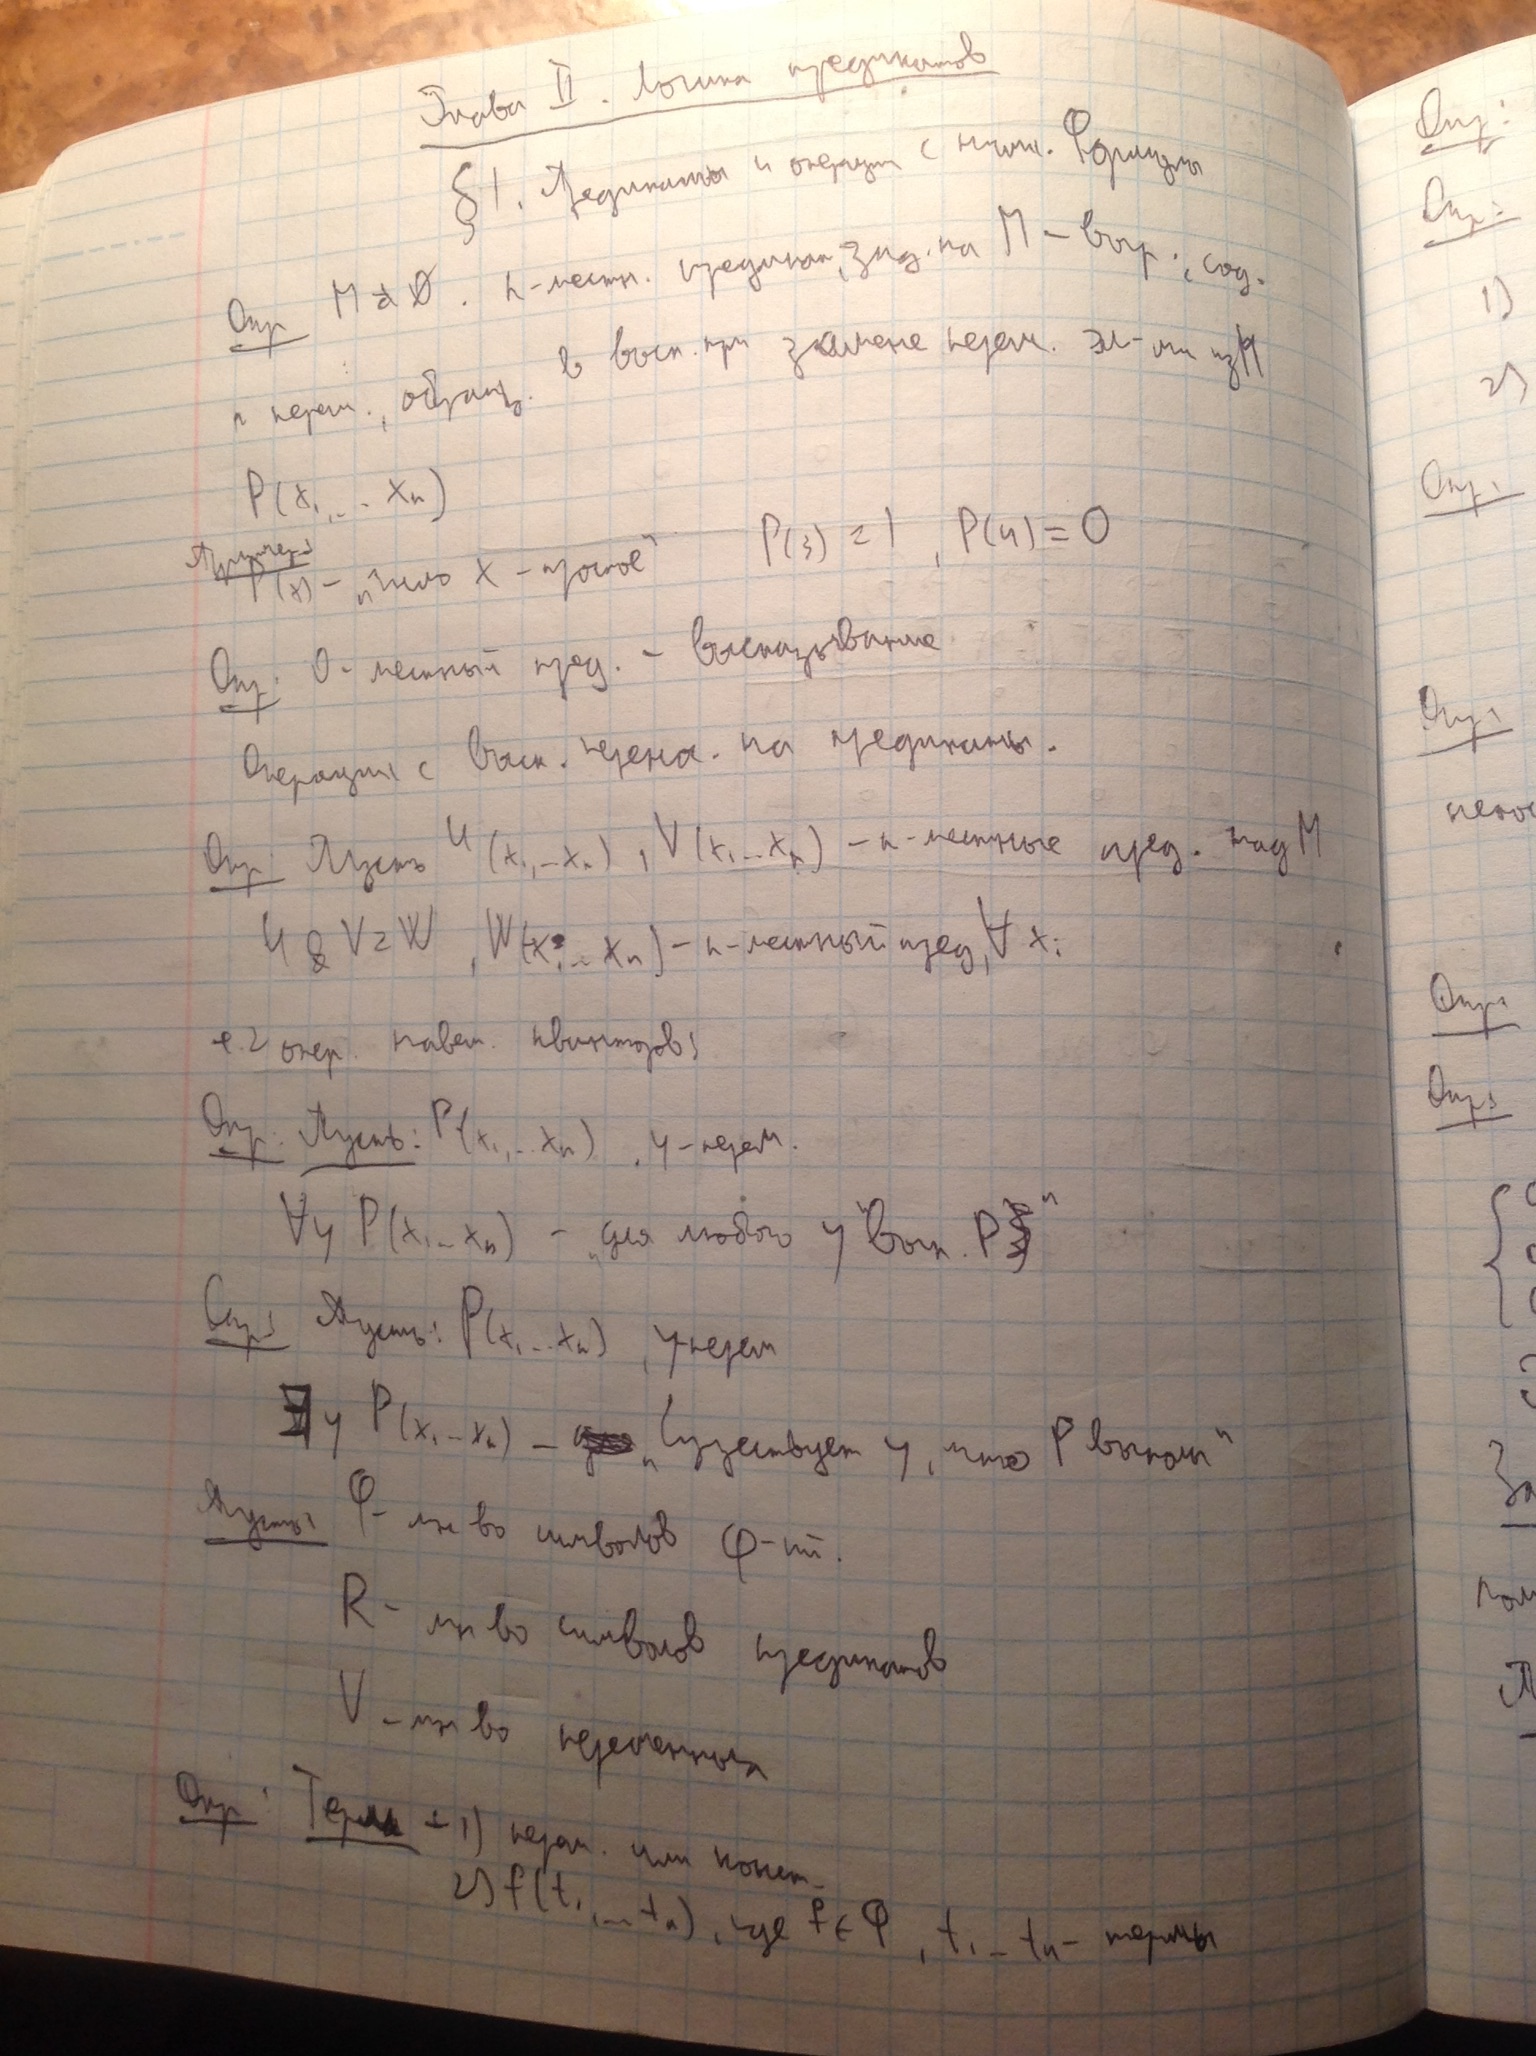 Глава II. Логика предикатов
§1. Предикаты и операции с ними. Формулы
Опр M ≠ ∅. n-местн. предикат, зад. на M – выр., сод.
n перем., обращ. в выск. при замене перем. эл-ми из M
P(x₁,... xₙ)
Пример:
P(x) – „число x – простое" P(3) = 1, P(4) = 0
Опр: 0-местный пред. – высказывание
Операции с выск. перенос. на предикаты.
Опр: Пусть U(x₁,...xₙ), V(x₁...xₙ) – n-местные пред. над M
U & V = W, W(x₁... xₙ) – n-местный пред, ∀ xᵢ
+ 2 опер. навеш. кванторов:
Опр: Пусть: P(x₁,...xₙ), y-перем.
∀y P(x₁...xₙ) – „для любого y вып. P"
Опр: Пусть: P(x₁...xₙ), y-перем
∃y P(x₁...xₙ) – „Существует y, что P выполн"
Пусть: Φ – мн-во символов ф-ий.
R – мн-во символов предикатов
V – мн-во переменных
Опр: Терм – 1) перем. или конст.
2) f(t₁,...tₙ), где f ∈ Φ, t₁...tₙ – термы
Опр:
Опр:
1)
2)
Опр:
Опр:
Опр:
Опр: